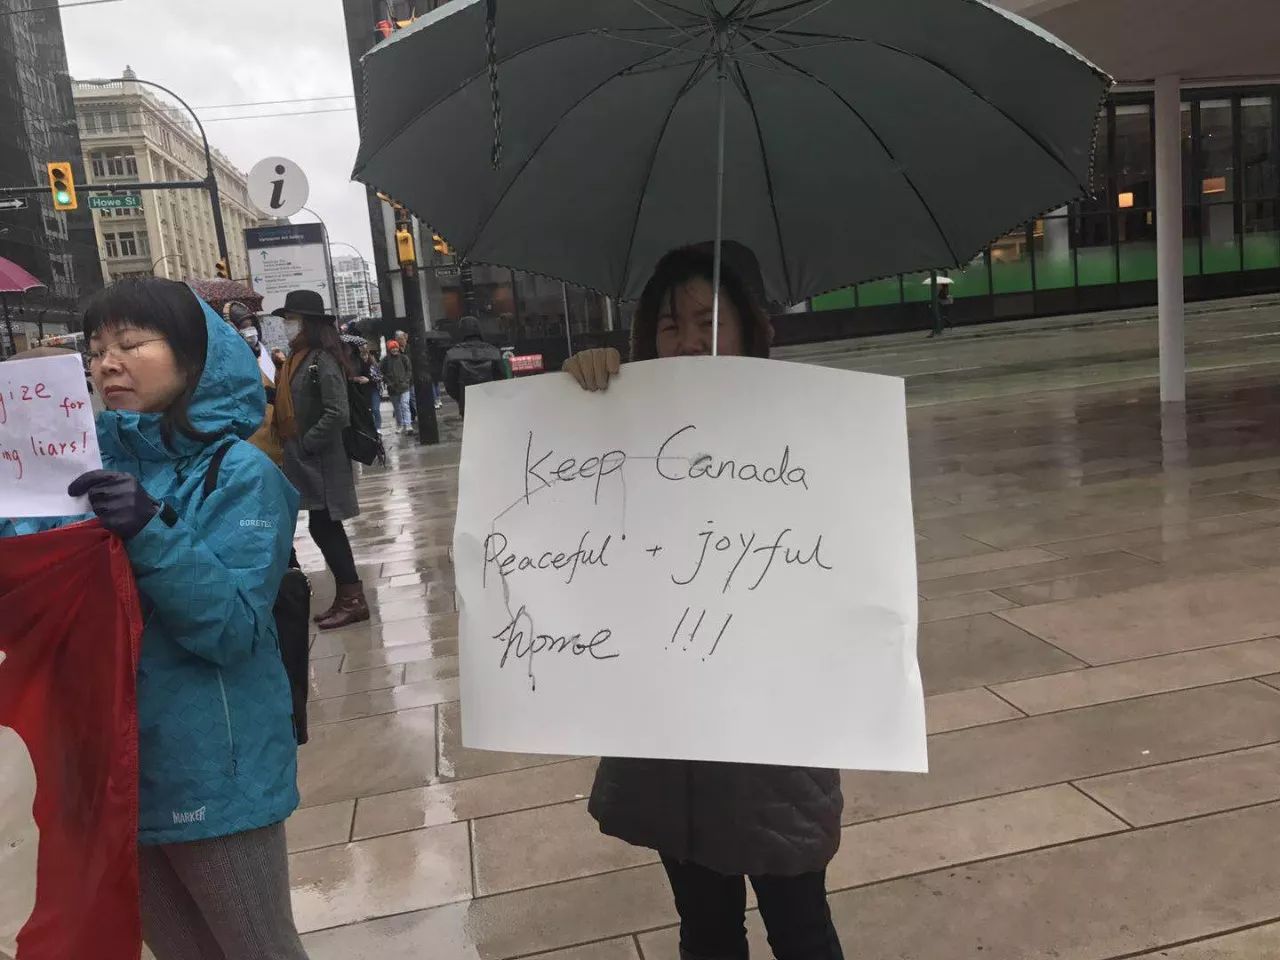 Howe St
i
Vancouver Art Gallery
gize for
ing liars!
GORETEX
MARKER
Keep Canada
Peaceful + joyful
home !!!